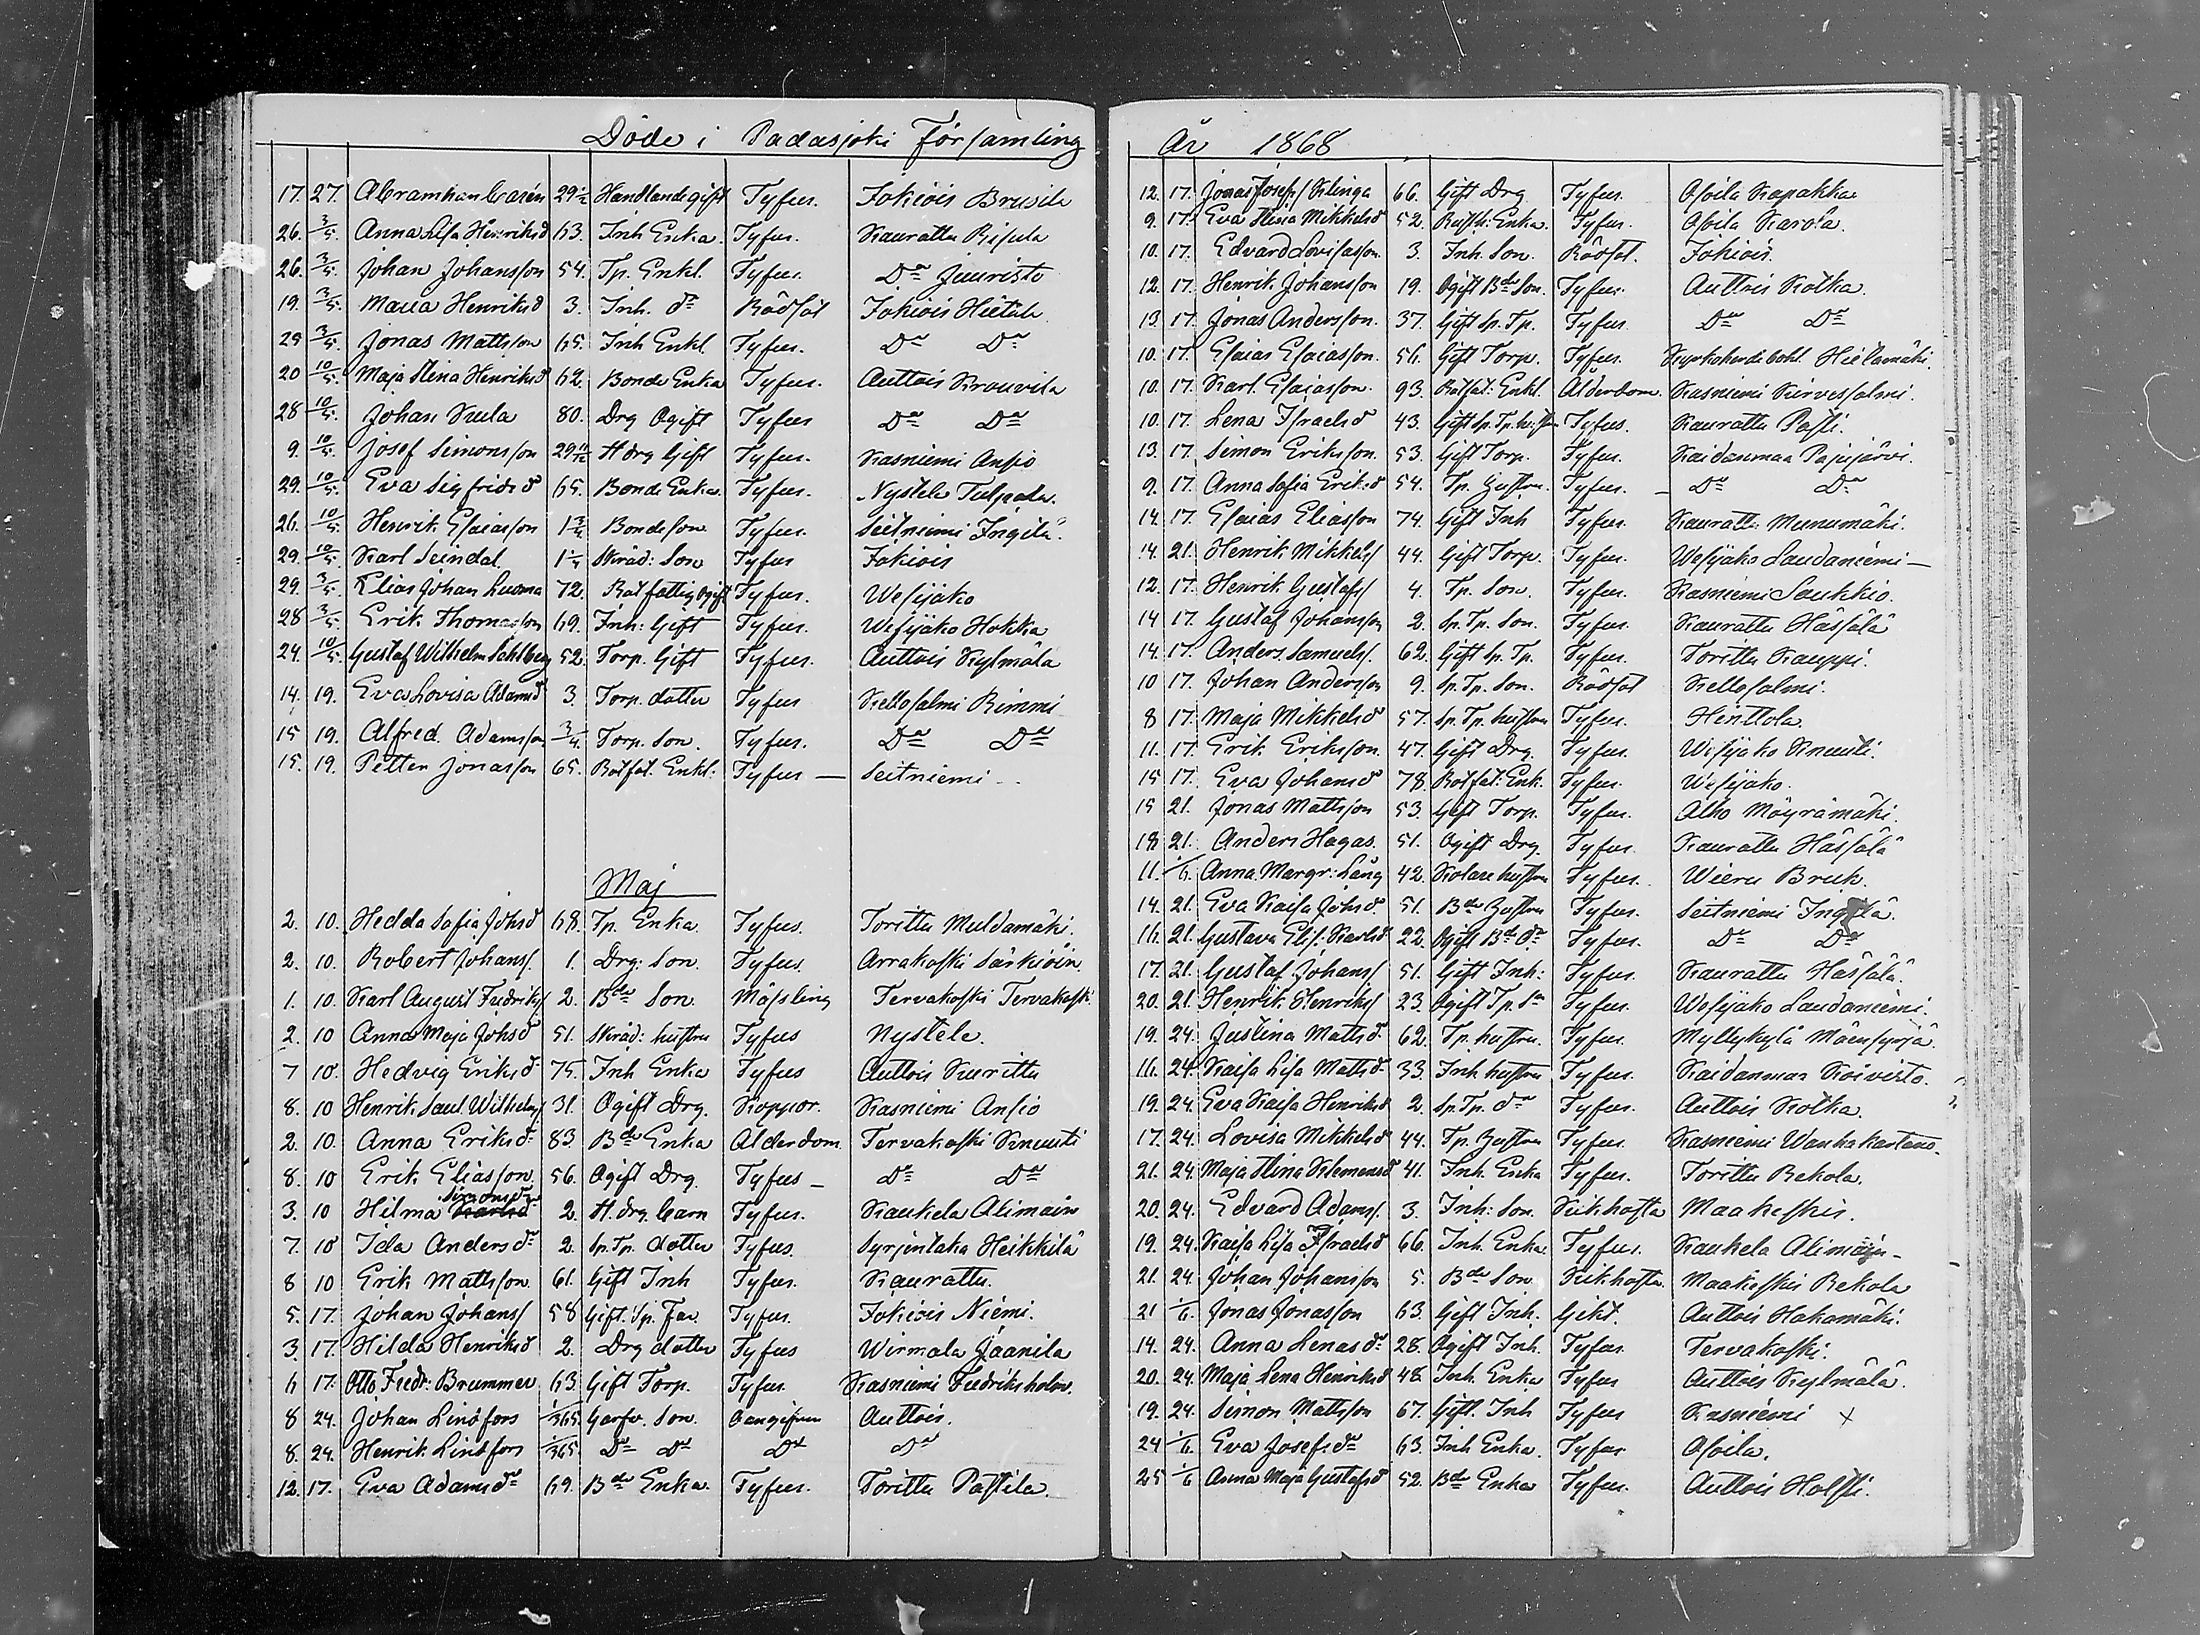 Döde i Padasjoki Församling
17. 27. Abramhan Casén 29 1/2 Handlande gift Tyfus. Jokiois Bruvila
26. 3/5. Anna Lisa Henriksd 63. Inh Enka. Tyfus. Kaurattu
26. 3/5. Johan Johansson 54. Tp. Enkl. Tyfus. Do Juuristo
19. 3/5. Maria Henriksd 3. Inh. dr Rödsot Jokiois Hietala
29 3/5. Jonas Mattsson 65. Inh Enkl. Tyfus. Do Do
20 10/5. Maja Stina Henriksd 62. Bonde Enka Tyfus. Auttois Krouvila
28 10/5. Johan Kula 80. Drg Ogift Tyfus Do Do
9. 10/5. Josef Simonsson 29 H drg Gift Tyfus. Kasniemi Ansio
29. 10/5. Eva Sigfridsd 65. Bonde Enka. Tyfus. Nystele Tulpala.
26. 10/5. Henrik Esaiasson 1 3/4 Bondeson Tyfus. Seitniemi Ingilä.
29. 10/5. Karl Seindal. 1 1/4 Skräd: Son Tyfus Jokiois
29. 3/5. Elias Johan Luoma 72. Rotfattig Ogift Tyfus. Wesijako
28 3/5. Erik Thomasson 69. Inh: Gift Tyfus. Wesijako Hokka
24. 10/5. Gustaf Wilhelm Sahlberg 52. Torp. Gift Tyfus. Auttois Kylmälä
14. 19. Eva Lovisa Adamsd 3 Torp. dotter Tyfus Kellosalmi Rimmi
15 19. Alfred. Adamsson 3/4. Torp. Son. Tyfus. Do Do
15. 19. Petter Jonasson 65. Rotfat. Enkl. Tyfus — Seitniemi
Maj
2. 10. Hedda Sofia Johsd 68. Tp. Enka. Tyfus. Torittu Muldamäki.
2. 10. Robert Johans/. 1. Drg: Son. Tyfus. Arrakoski Särkiöin.
1. 10. Karl August Fredriks/ 2. Bde Son Mässling Tervakoski Tervakoski
2. 10 Anna Maja Johsd 51. Skräd: hustru Tyfus Nystele.
7 10. Hedvig Eriksd 75. Inh Enka Tyfus Auttois Kurittu
8. 10 Henrik Saul Wilhelms/ 31. Ogift Drg. Koppor. Kasniemi Ansio
2. 10. Anna Eriksd 83 Bde Enka Alderdom Tervakoski Knuuti
8. 10 Erik Eliasson. 56. Ogift Drg. Tyfus — Do Do
3. 10 Hilma Simonsdr 2. H. drg. barn Tyfus. Kaukela Alimäin
7. 10 Ida Andersdr 2. Sp. Tp. dotter Tyfus. Syrjentaka Heikkilä
8 10 Erik Mattsson. 61. Gift Inh Tyfus. Kaurattu.
5. 17. Johan Johans/ 58 Gift. Sp. Far Tyfus. Jokiois Niemi.
3. 17. Hilda Henriksd 2. Drg dotter Tyfus Wirmala Jaanila
6 17. Otto Fredr: Brummer 63. Gift Torp. Tyfus. Kasniemi Fredriksholm.
8 24. Johan Lindfors 1/365. Garfv. Son. Oangifven Auttois.
8. 24. Henrik Lindfors 1/365. Do Do Do Do
12. 17. Eva Adamsdr 69. Bde Enka. Tyfus. Torittu Pastila.
År 1868
12. 17. Jonas Josefs/ Klinga 66. Gift Drg Tyfus. Osoila Kapakka
9. 17. Eva Stina Mikkelsd 52. Rusth: Enka. Tyfus. Osoila Karola.
10. 17. Edvard Lovisason. 3. Inh. Son. Rödsot. Jokiois.
12. 17. Henrik Johansson 19. Ogift Bde Son. Tyfus. Auttois Kotka.
13. 17. Jonas Andersson. 37. Gift Sp. Tp. Tyfus. Do Do
10. 17. Esaias Esaiasson. 56. Gift Torp. Tyfus. Kyrkoherdebohl. Hietamäki.
10. 17. Karl Esaiasson. 93. Rotfat: Enkl. Ålderdom. Kasniemi Kirvessalmi.
10. 17. Lena Israelsd 43. Gift Sp. Tp. hustru Tyfus. Kaurattu Pasti.
13. 17. Simon Eriksson. 53. Gift Torp. Tyfus. Kaidanmaa Pajujärvi.
9. 17. Anna Sofia Eriksd 54. Tp. Hustru. Tyfus. Do Do
14. 17. Esaias Eliasson 74. Gift Inh Tyfus. Kaurattu Munumäki.
14. 21. Henrik Mikkels/ 44. Gift Torp. Tyfus. Wesijako Laudaniemi —
12. 17. Henrik Gustafs/ 4. Tp. Son. Tyfus. Kasniemi Saukkio.
14 17. Gustaf Johansson 2. Sp. Tp. Son. Tyfus. Kaurattu Hässälä
14. 17. Anders Samuels/. 62. Gift Sp. Tp. Tyfus. Torittu Kauppi.
10 17. Johan Andersson 9. Sp. Tp. Son. Rödsot Kellosalmi.
8 17. Maja Mikkelsd 57. Sp. Tp. hustru Tyfus. Henttola.
11. 17. Erik Eriksson. 47. Gift Drg. Tyfus. Wesijako Knuuti.
15 17. Eva Johansd 78. Rotfat: Enk. Tyfus. Wesijako.
15 21. Jonas Mattsson 53. Gift Torp. Tyfus. Alho Mäyrämäki.
18. 21. Anders Hagas. 51. Ogift Drg. Tyfus. Kaurattu Hässälä
11. 1/6. Anna Margr: Lång 42. Kolare hustru Tyfus. Wieru Bruk.
14. 21. Eva Kaisa Johsd. 51. Bde Hustru Tyfus. Seitniemi Ingilä.
16. 21. Gustava Elis. Karlsd 22. Ogift Bde dr Tyfus. Do Do
17. 21. Gustaf Johans/ 51. Gift Inh: Tyfus. Kaurattu Hässälä.
20. 21. Henrik Henriks/ 23. Ogift Tp. Sn Tyfus. Wesijako Laudaniemi.
19. 24. Justina Mattsd. 62. Tp. hustru. Tyfus. Myllykylä Mäensyrjä.
16. 24. Kaisa Lisa Mattsd 33. Inh hustru Tyfus. Kaidanmaa Koivisto.
19. 24. Eva Kaisa Henriksd 2. Sp. Tp. dr Tyfus. Auttois Kotka.
17. 24. Lovisa Mikkelsd 44. Tp. Hustru Tyfus. Kasniemi Wanhakartano.
21. 24. Maja Stina Klemensd 41. Inh. Enka Tyfus. Torittu Rekola.
20. 24. Edvard Adams/. 3. Inh: Son. Kikhosta Maakeskis.
19. 24. Kaisa Lisa Israelsd 66. Inh. Enka. Tyfus. Kaukela Alimäin —
21. 24 Johan Johansson 5. Bde Son Kikhosta. Maakeskis Rekola
21 1/6. Jonas Jonasson 63. Gift Inh. Gikt. Auttois Hakamäki.
14. 24. Anna Lenasdr 28. Ogift Inh. Tyfus. Tervakoski.
20. 24. Maja Lena Henriksd 48. Inh. Enka Tyfus Auttois Kylmälä.
19. 24. Simon Mattsson 67. Gift. Inh Tyfus Kasniemi x
24 1/6. Eva Josefsdr 63. Inh Enka. Tyfus Osoila.
25 1/6 Anna Maja Gustafsd 52. Bde Enka Tyfus. Auttois Holsti.